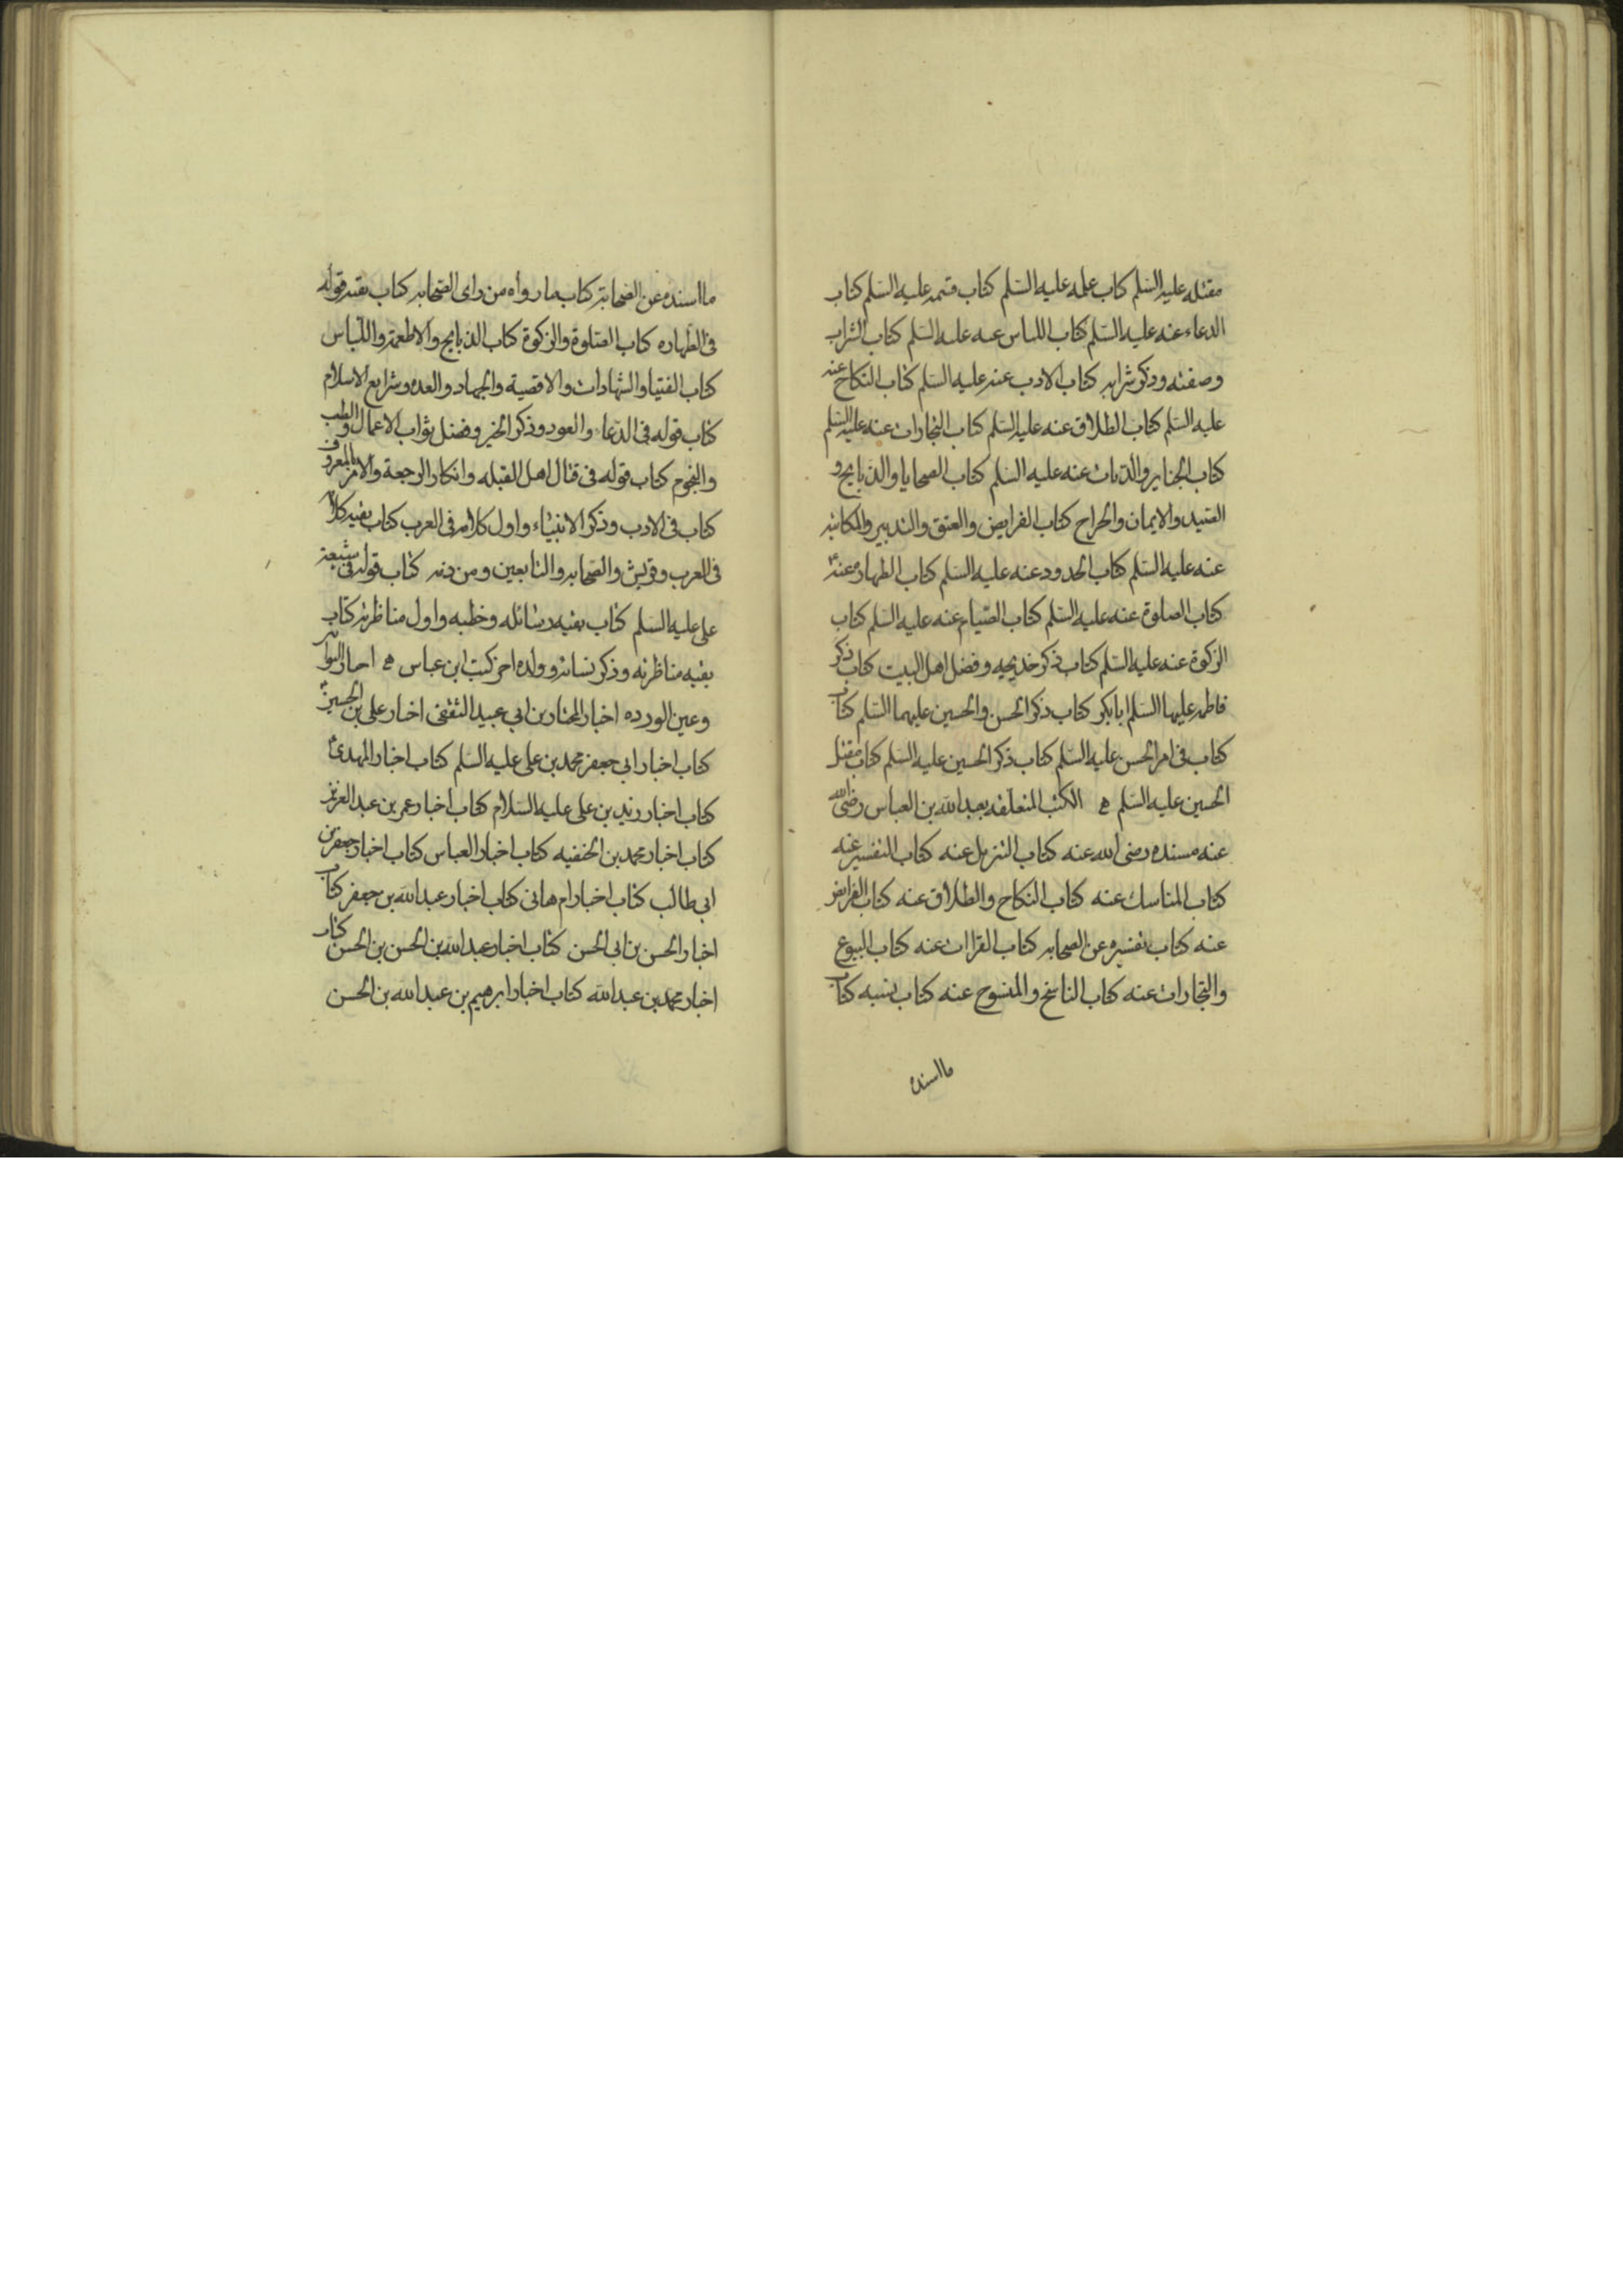 مقتله عليه السلم كتاب علمه عليه السلم كتاب قسمه عليه السلم كتاب
الدعاء عنه عليه السلم كتاب اللباس عنه عليه السلم كتاب الشراب
وصفته وذكر شرابه كتاب الادب عنه عليه السلم كتاب النكاح عنه
عليه السلم كتاب الطلاق عنه عليه السلم كتاب التجارات عنه عليه السلم
كتاب الجنايز والديات عنه عليه السلم كتاب الضحايا والذبايح و
الصيد والايمان والخراج كتاب الفرايض والعتق والتدبير والمكاتبه
عنه عليه السلم كتاب الحدود عنه عليه السلم كتاب الطهاره عنه
كتاب الصلوة عنه عليه السلم كتاب الصيام عنه عليه السلم كتاب
الزكوة عنه عليه السلم كتاب ذكر خديجه وفضل اهل البيت كتاب ذكر
فاطمه عليها السلم ابابكر كتاب ذكر الحسن والحسين عليهما السلم كتاب
كتاب فى امر الحسن عليه السلم كتاب ذكر الحسين عليه السلم كتاب مقتل
الحسين عليه السلم ه الكتب المتعلقه بعبد الله بن العباس رضى الله
عنه مسنده رضى الله عنه كتاب التنزيل عنه كتاب التفسير عنه
كتاب المناسك عنه كتاب النكاح والطلاق عنه كتاب الفرايض
عنه كتاب تفسيره عن الصحابه كتاب القراات عنه كتاب البيوع
والتجارات عنه كتاب الناسخ والمنسوخ عنه كتاب نسبه كتاب
ما اسنده
ما اسنده عن الصحابة كتاب ما رواه من راى الصحابه كتاب بقيه قوله
فى الطهاره كتاب الصلوة والزكوة كتاب الذبايح والاطعمة واللباس
كتاب الفتيا والشهادات والاقضية والجهاد والعده وشرايع الاسلام
كتاب قوله فى الدعا والعود وذكر الخير وفضل ثواب الاعمال والطب
والنجوم كتاب قوله فى قتال اهل القبله وانكار الرجعة والامر بالمعروف
كتاب فى الادب وذكر الانبياء واول كلامه فى العرب كتاب بقيه كلامه
فى العرب وقريش والصحابه والتابعين ومن ذمه كتاب قوله فى شيعة
على عليه السلم كتاب بقيه رسائله وخطبه واول مناظرته كتاب
بقيه مناظرته وذكر نسائه وولده اخر كتب ابن عباس ه اخبار التوابين
وعين الورده اخبار المختار بن ابي عبيد الثقفى اخبار على بن الحسين
كتاب اخبار ابى جعفر محمد بن على عليه السلم كتاب اخبار المهدى
كتاب اخبار زيد بن على عليه السلام كتاب اخبار عمر بن عبد العزيز
كتاب اخبار محمد بن الحنفيه كتاب اخبار العباس كتاب اخبار جعفر بن
ابى طالب كتاب اخبار ام هانى كتاب اخبار عبد الله بن جعفر كتاب
اخبار الحسن بن ابى الحسن كتاب اخبار عبد الله بن الحسن بن الحسن كتاب
اخبار محمد بن عبد الله كتاب اخبار ابرهيم بن عبد الله بن الحسن